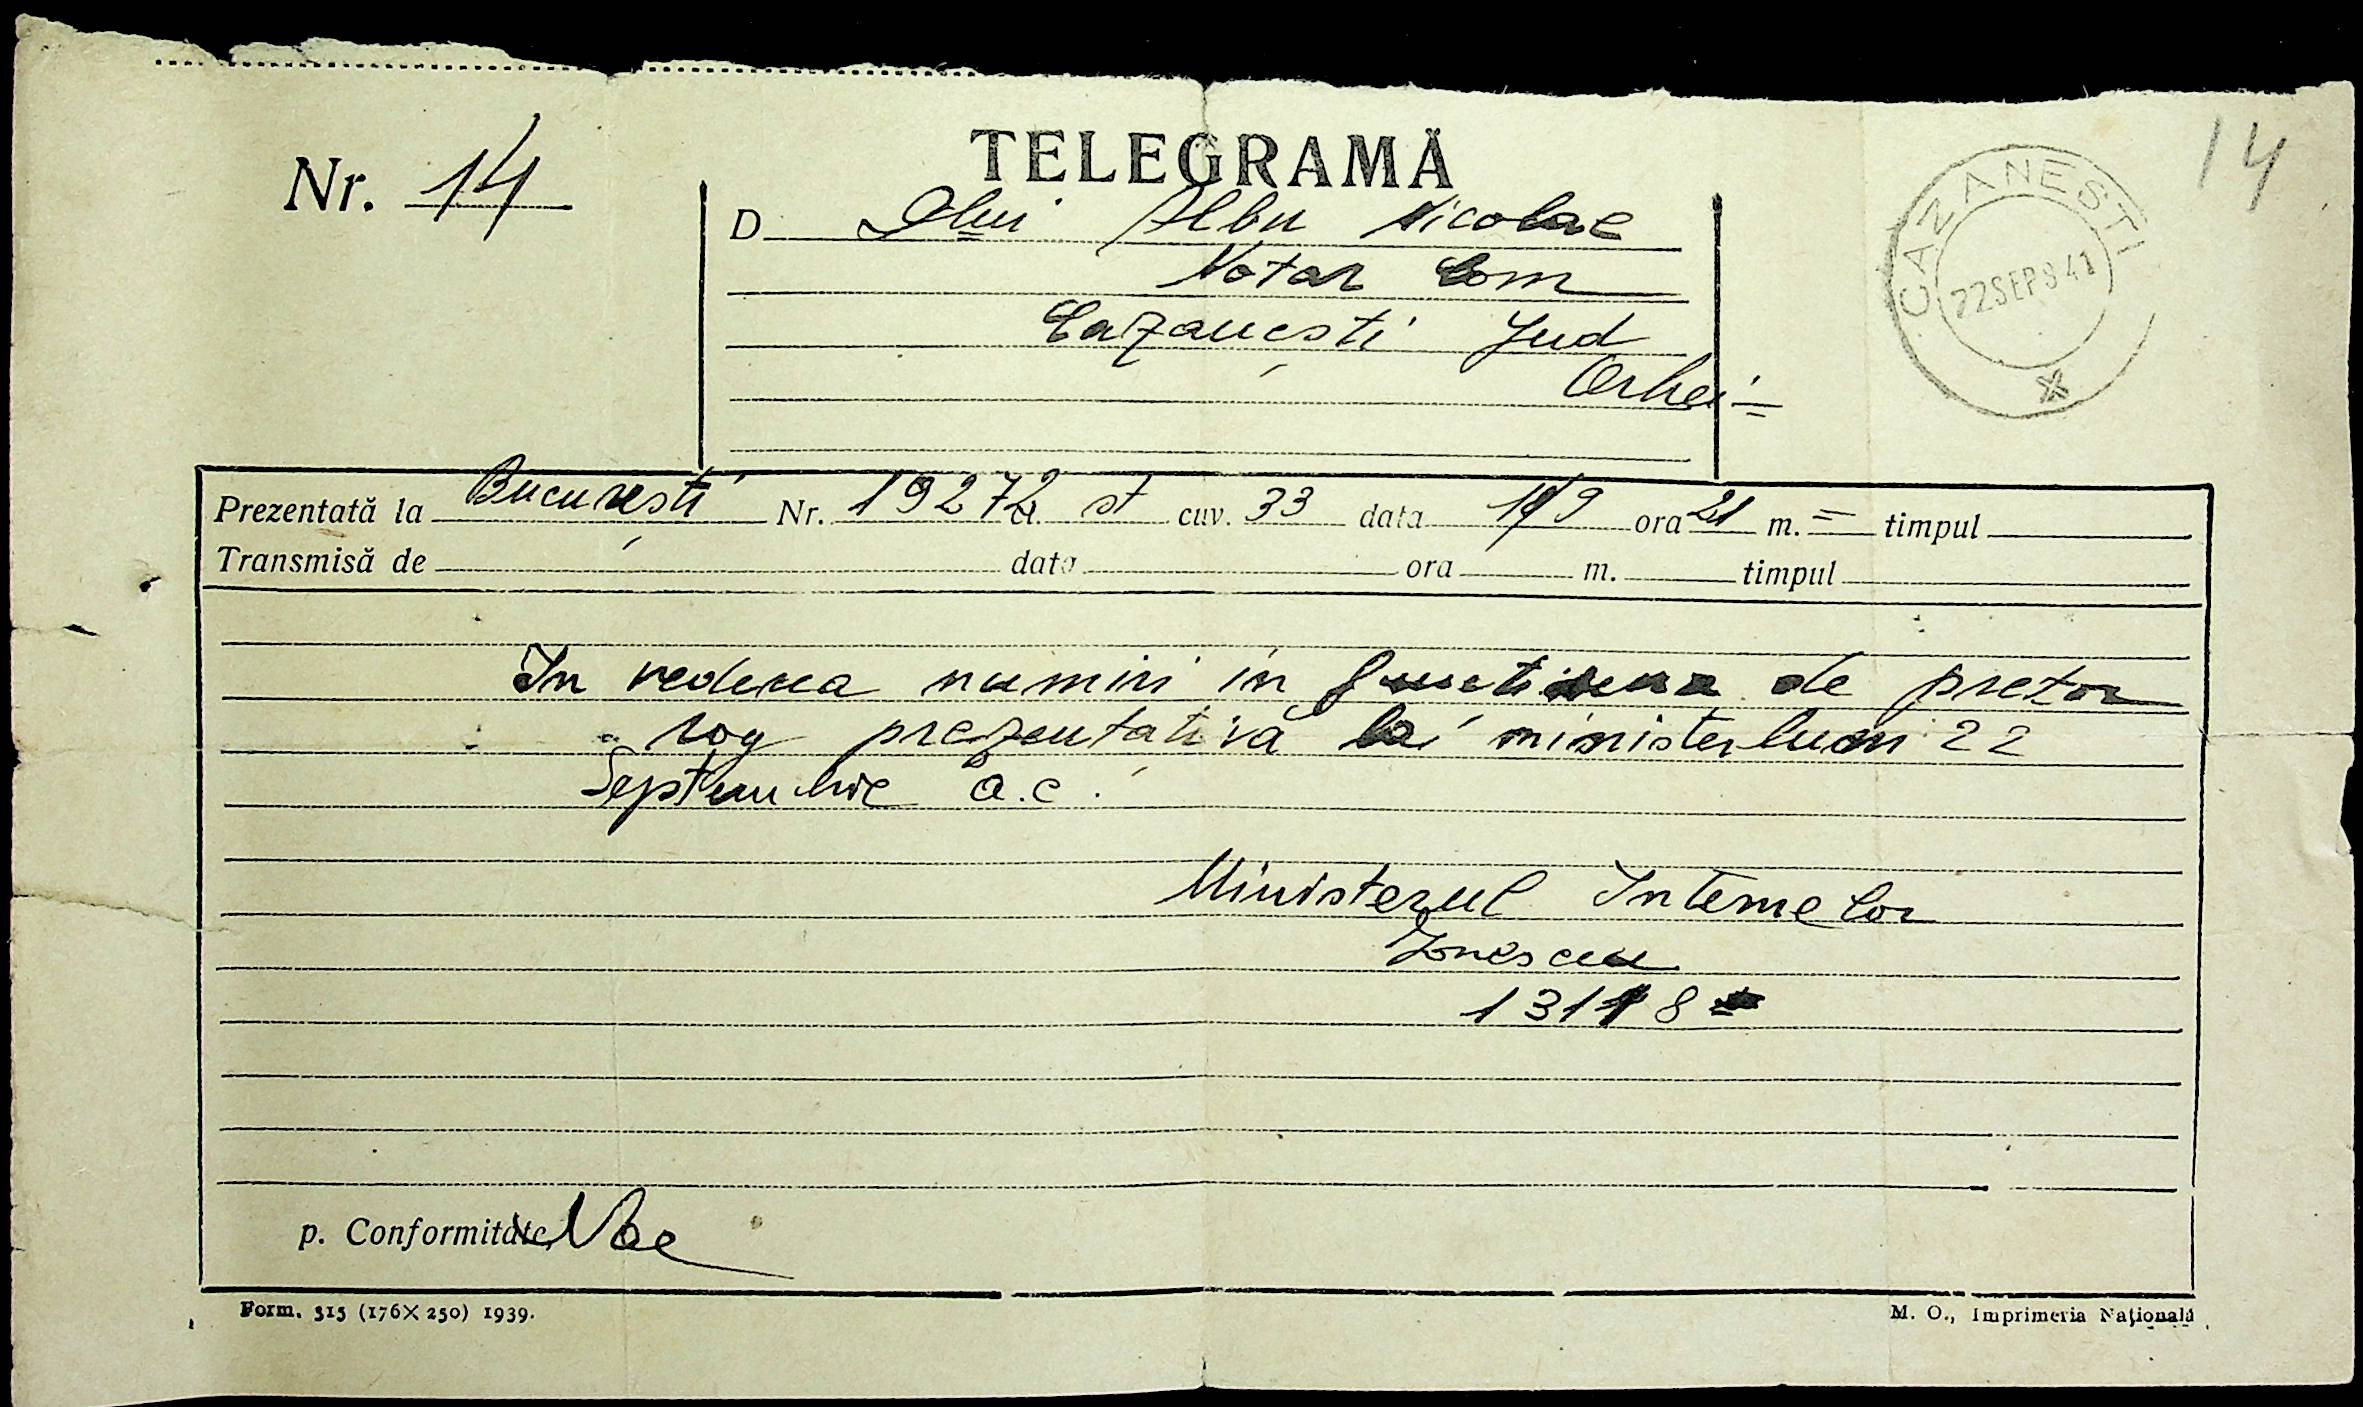 TELEGRAMĂ
14
Nr. 14
CAZANESTI
22 SEP 941
D. Dlui Albu Nicolae
Notar Com
Cazanesti Jud
Orhei =
Prezentată la Bucuresti Nr. 19272 cl. st cuv. 33 data /9 ora 21 m. = timpul
Transmisă de data ora m. timpul
In vederea numiri in functiunea de pretor
rog prezentativă la ministerlum 22
Septembrie a.c.
Ministerul Internelor
Ionescu
13118
p. Conformitate, Noe
Form. 315 (176×250) 1939.
M. O., Imprimeria Națională